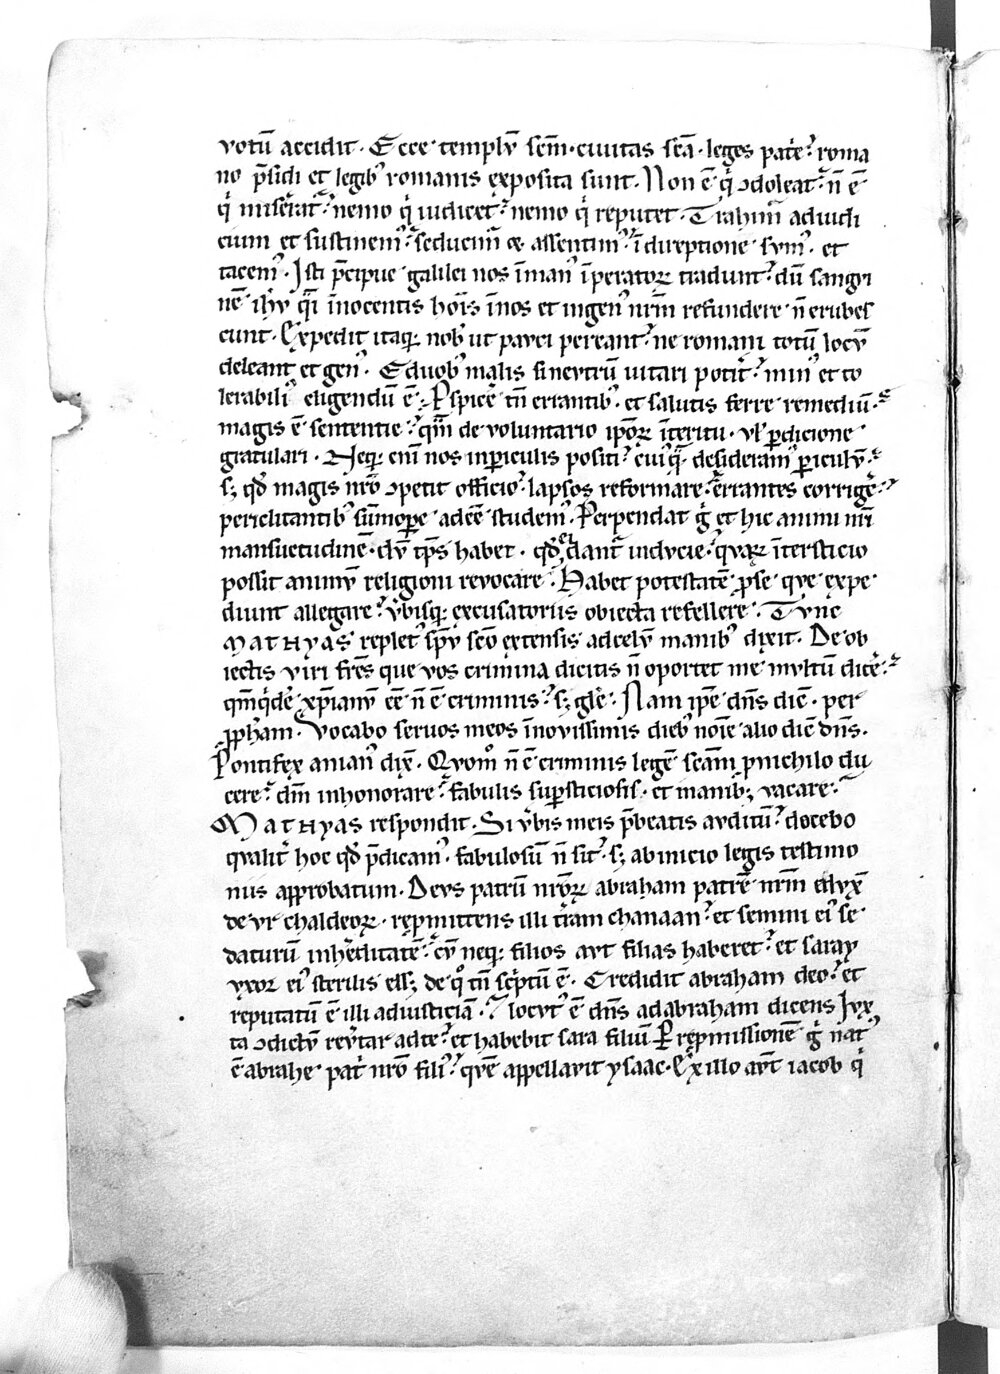 votū accidit. Ecce templū scm̄. civitas scā. leges pat̄ne. roma
no p̄sidi et legib; romanis exposita sunt. Non ē q̇ ꝯdoleat. n̄ ē
q̇ mis̄eat. nemo q̇ iudicet. nemo q̇ reputet. Trahim̄ ad iudi
cium et sustinem⁹. seducim̄ & assentim⁹. ī direptione sum⁹. et
tacem⁹. Isti p̄cipue galilei nos īman⁹ īperatorꝝ tradunt. dū sangui
nē ihū īnocentis hoīs ī nos et ī gen⁹ nr̄m refundere n̄ erubes
cunt. Expedit itaqꝫ nob⁹ ut pauci pereant. ne romani totū locū
deleant et gen⁹. E duob⁹ malis si neutrū uitari potit̄. min⁹ et to
lerabili⁹ eligendū ē. ꝓspicē tn̄ errantib⁹. et salutis ferre remediū.
magis ē sententie. qm̄ de voluntario ip̄oꝝ īteritu. vl̄ ꝑdicione
gratulari. Neqꝫ eni nos in ꝑiculis positi. cui⁹q̄ desideram⁹ ꝑiculū.
sꝫ qd̄ magis nr̄o ꝯpetit officio. lapsos reformare. errantes corrigē.
periclitantib⁹ sūmoꝑe adeē studem⁹. Perpendat ḡ et hic animi nr̄i
mansuetudinē. dū tp̄s habet. qd̄ ei dant̄ inducie. quaꝝ īterstitio
possit animū religioni revocare. Habet potestatē ꝓ se que expe
diunt allegare. v̄bisqꝫ excusatoriis obiecta refellere. Tunc
MATHYAS replet⁹ sp̄u scō extensis ad celū manib⁹ dixit. De ob
iectis viri fr̄es que vos crimina dicitis n̄ oportet me multū dicē.
qm̄ q̇dē xp̄ianū eē n̄ ē criminis. sꝫ gl̄e. Nam ip̄e dn̄s dic̄. per
ꝓph̄am. Vocabo seruos meos ī novissimis dieb⁹ noīe alio dic̄ dn̄s.
Pontifex anian⁹ dix̄. Quom̊ n̄ ē criminis legē scām ꝓ nichilo du
cere. dm̄ inhonorare. fabulis suꝑsticiosis. et manib; vacare.
MATHYAS respondit. Si v̄bis meis p̄beatis auditū. docebo
qualit̄ hoc qd̄ p̄dicam⁹. fabulosū n̄ sit. sꝫ ab inicio legis testimo
niis approbatum. Deus patrū nr̄oꝝ abraham patrē nr̄m
de vr chaldeoꝝ. repmittens illi t̄ram chanaan. et semini ei⁹ se
daturū in h̄editatē. cū neqꝫ filios aut filias haberet. et saray
uxor ei⁹ sterilis eēt. de q̊ tn̄ sc̄ptū ē. Credidit abraham deo. et
reputatū ē illi ad iusticiā. locut⁹ ē dn̄s ad abraham dicens Jux
ta ꝯdictū rev̄tar ad te. et habebit sara filiū. Ꝑ repmissionē ḡ nat⁹
ē abrahe pat̄ nr̄o fili⁹. quē appellavit ysaac. Ex illo aūt iacob q̇